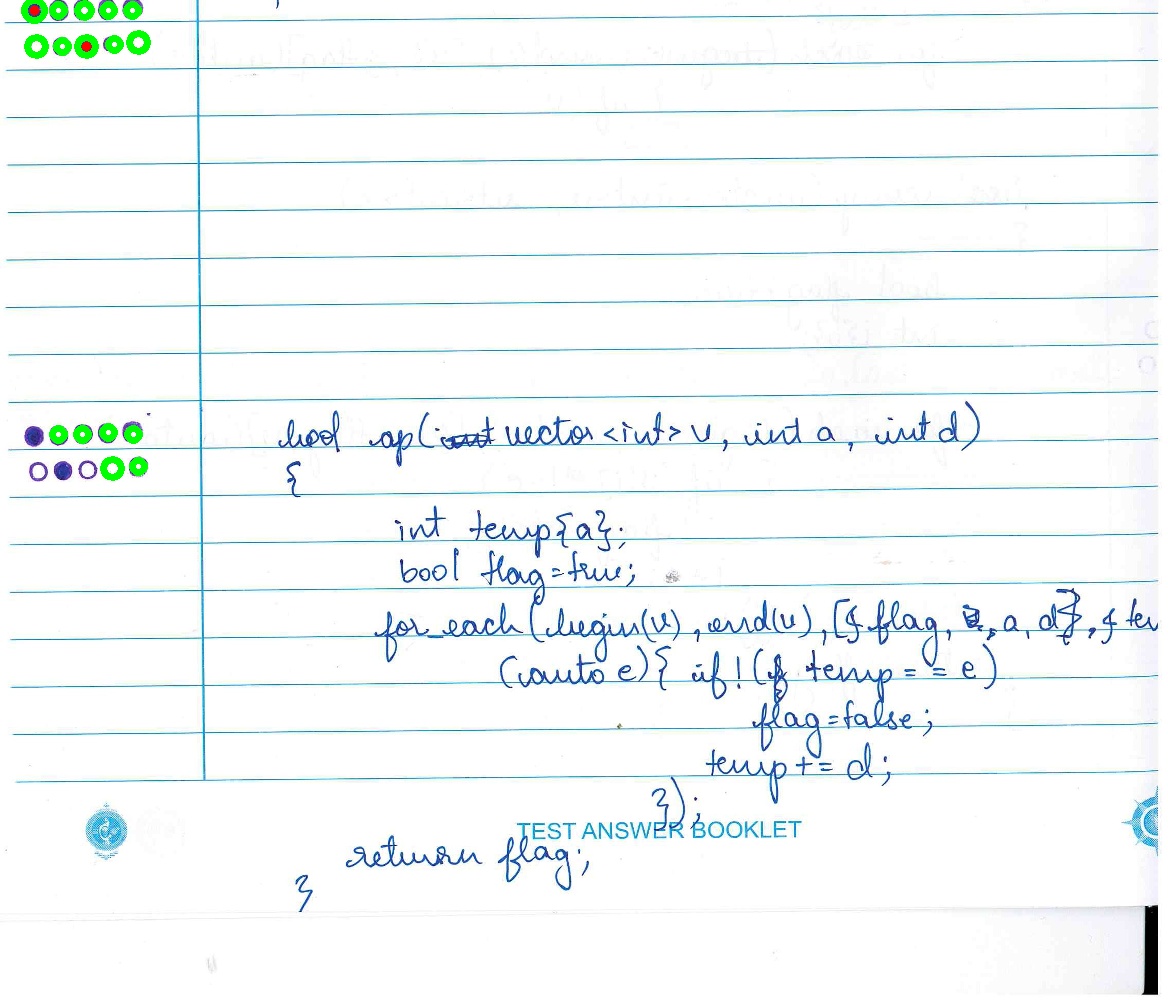 bool ap(vector<int> v, int a, int d)
{
int temp{a};
bool flag=true;
for_each(begin(v), end(v), [& flag, a, d, & tem
(auto e){ if!( temp == e)
flag=false;
temp += d;
});
TEST ANSWER BOOKLET
return flag;
}